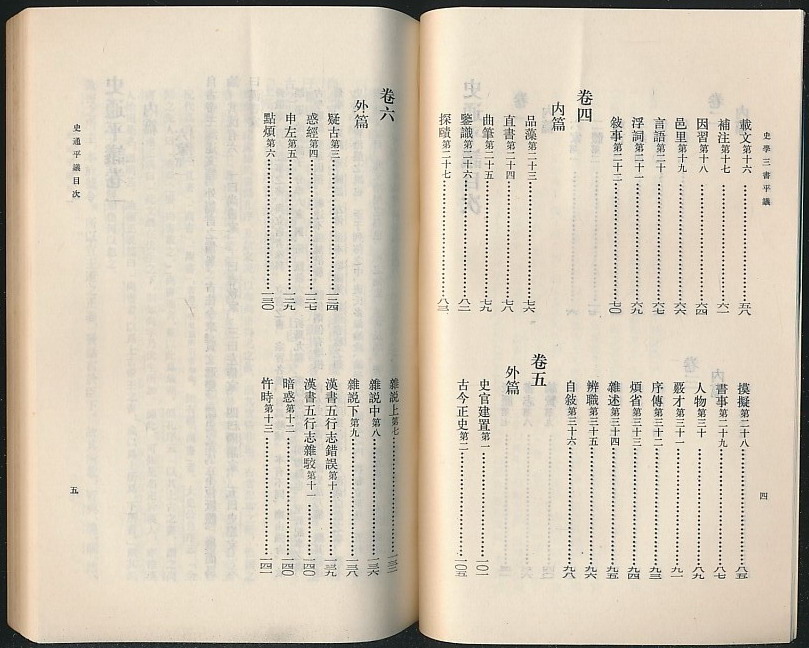 史學三書平議
載文第十六……五八
補注第十七……六一
因習第十八……六四
邑里第十九……六六
言語第二十……六七
浮詞第二十一……六九
敍事第二十二……七〇
卷四
內篇
品藻第二十三……七六
直書第二十四……七八
曲筆第二十五……七九
鑒識第二十六……八二
探賾第二十七……八三
摸擬第二十八……八五
書事第二十九……八七
人物第三十……八九
覈才第三十一……九一
序傳第三十二……九三
煩省第三十三……九四
雜述第三十四……九五
辨職第三十五……九六
自敍第三十六……九八
卷五
外篇
史官建置第一……一〇一
古今正史第二……一〇五
四
卷六
外篇
疑古第三……一二四
惑經第四……一二七
申左第五……一二九
點煩第六……一三〇
雜說上第七……一三二
雜說中第八……一三六
雜說下第九……一三八
漢書五行志錯誤第十……一三九
漢書五行志雜駮第十一……一四〇
暗惑第十二……一四〇
忤時第十三……一四一
史通平議目次
五